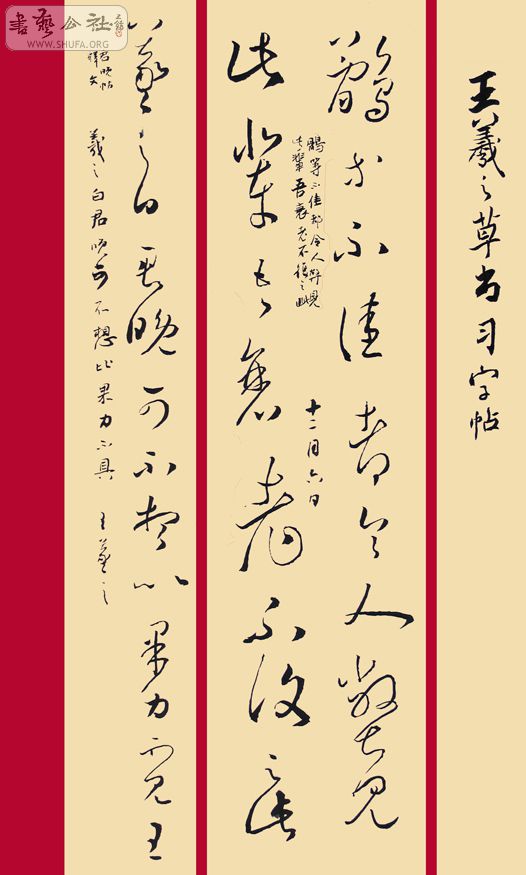 書藝公社
WWW.SHUFA.ORG
王羲之草书习字帖
鶻等不佳都令人弊見
鶻等不佳却令人弊見
此輩吾衰老不復之
十二月六日
此輩吾衰老不復之
羲之白君晚可不想比果力不具王
君晚帖
釋文
羲之白君晚可不想比果力不具 王羲之